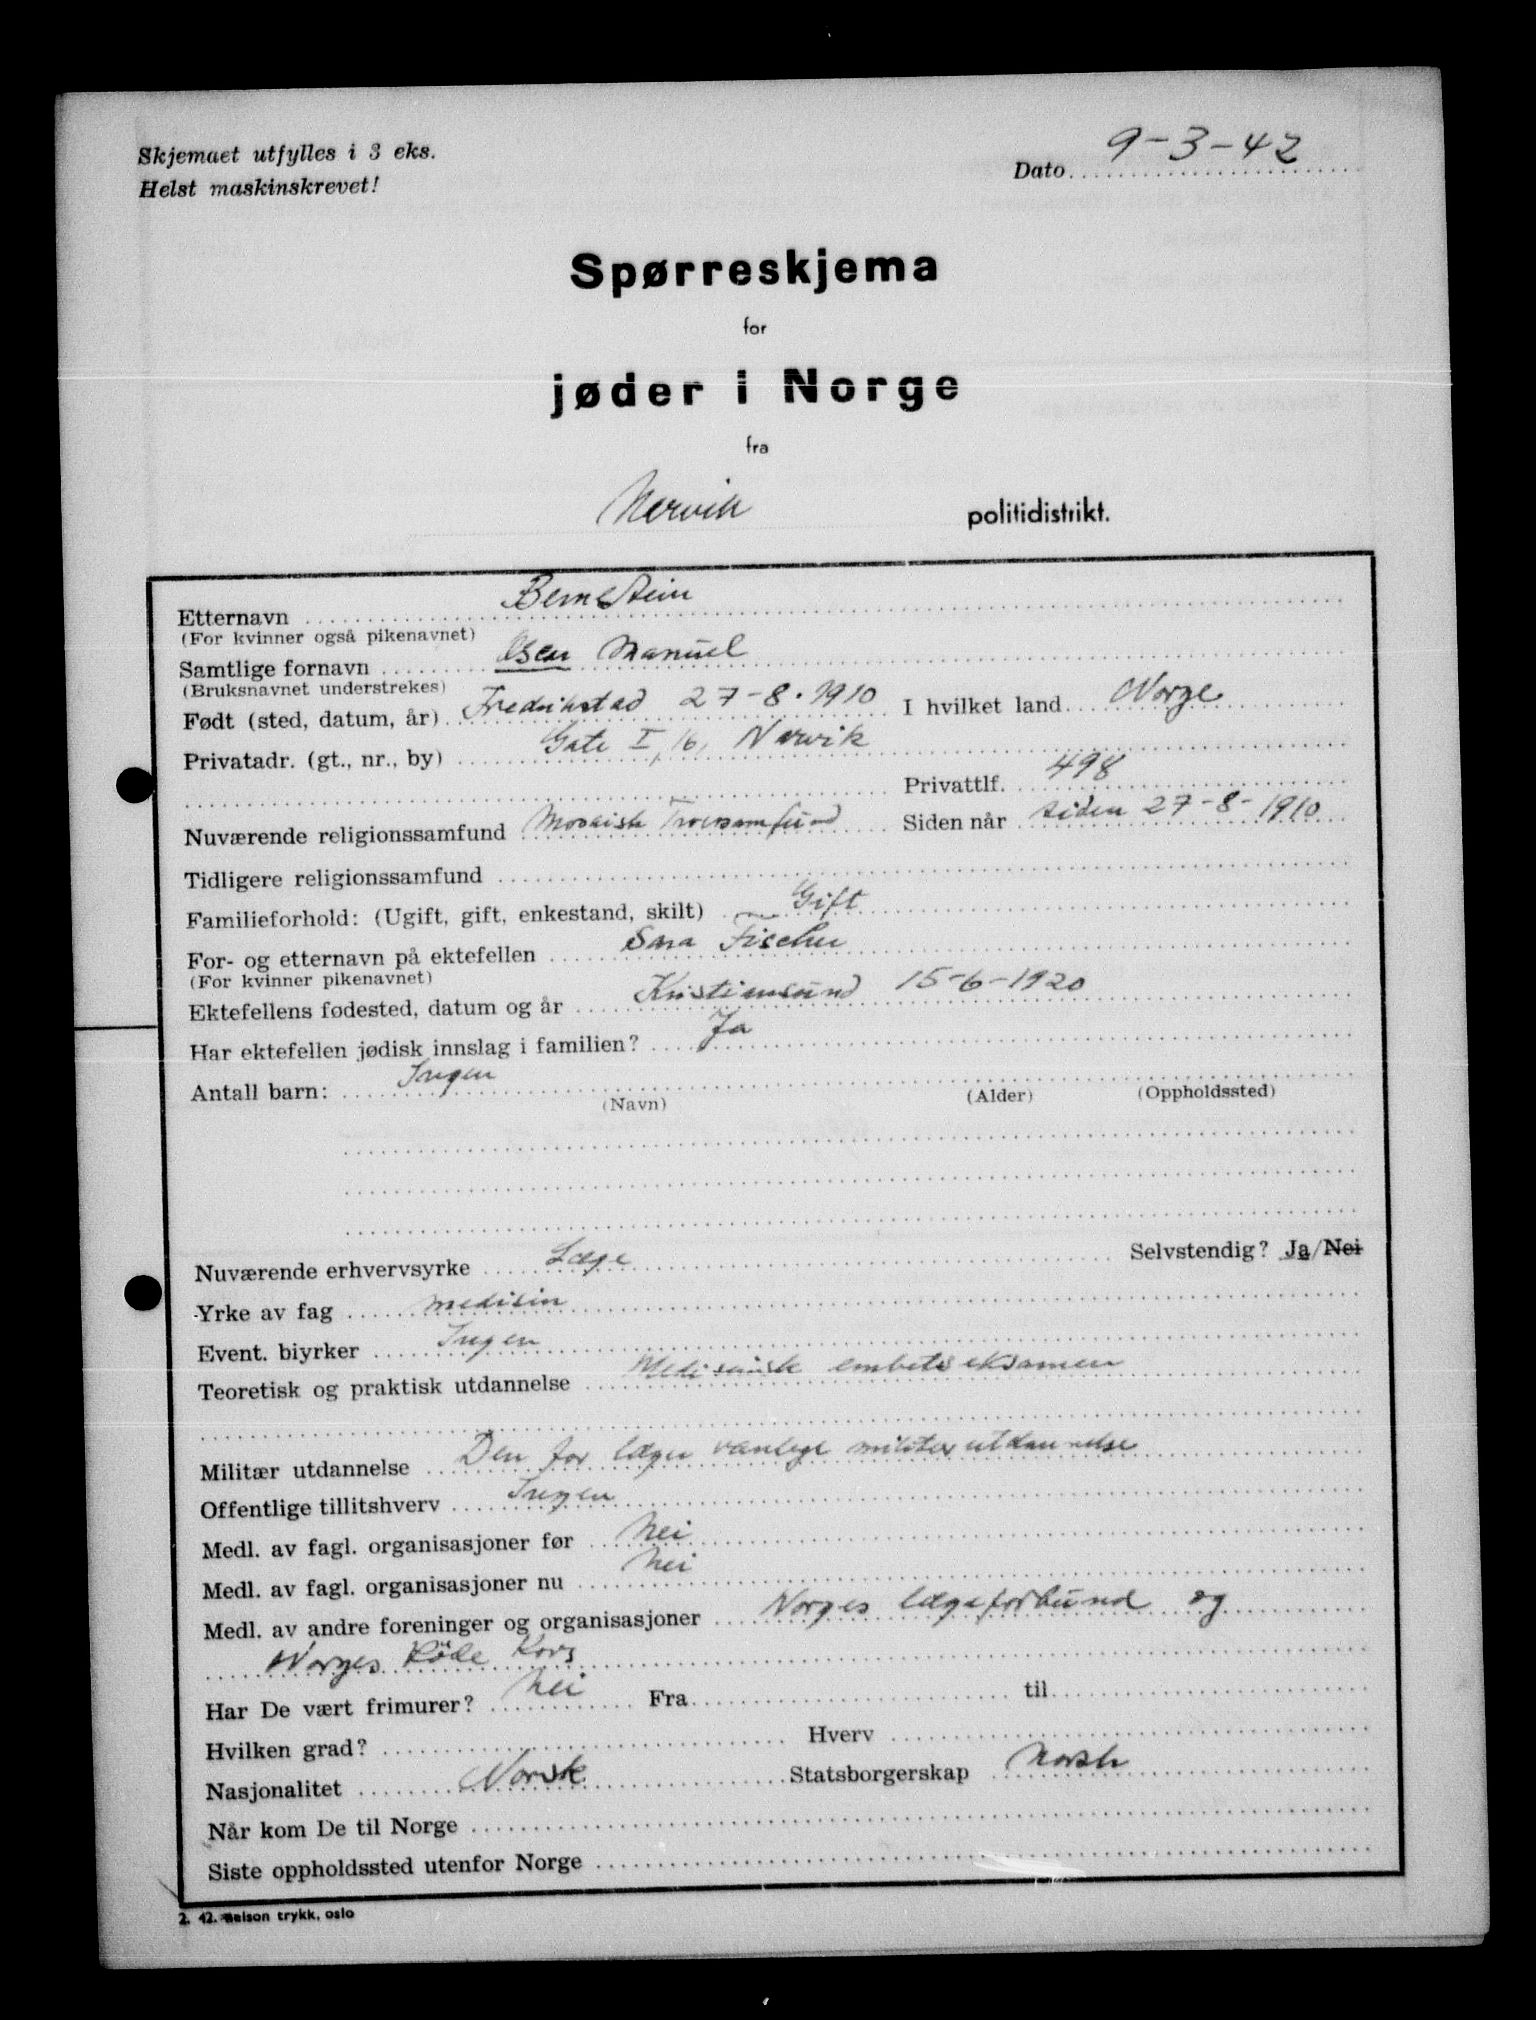 Skjemaet utfylles i 3 eks.
Helst maskinskrevet!
Dato 9-3-42
Spørreskjema
for
jøder i Norge
fra
Narvik politidistrikt.
Etternavn Bernstein
(For kvinner også pikenavnet)
Samtlige fornavn Oscar Manuel
(Bruksnavnet understrekes)
Født (sted, datum, år) Fredrikstad 27-8-1910 I hvilket land Norge
Privatadr. (gt., nr., by) Gate I, 16, Narvik
Privattlf. 498
Nuværende religionssamfund Mosaisk Trossamfund Siden når siden 27-8-1910
Tidligere religionssamfund
Familieforhold: (Ugift, gift, enkestand, skilt) Gift
For- og etternavn på ektefellen Sara Fischer
(For kvinner pikenavnet)
Ektefellens fødested, datum og år Kristiansund 15-6-1920
Har ektefellen jødisk innslag i familien? Ja
Antall barn: Ingen
(Navn) (Alder) (Oppholdssted)
Nuværende erhvervsyrke Læge Selvstendig? Ja/Nei
Yrke av fag medisin
Event. biyrker Ingen
Teoretisk og praktisk utdannelse Medisinsk embetseksamen
Militær utdannelse Den for læger vanlige militærutdannelse
Offentlige tillitshverv Ingen
Medl. av fagl. organisasjoner før Nei
Medl. av fagl. organisasjoner nu Nei
Medl. av andre foreninger og organisasjoner Norges lægeforbund og
Norges Röde Kors
Har De vært frimurer? Nei Fra til
Hvilken grad? Hverv
Nasjonalitet Norsk Statsborgerskap Norsk
Når kom De til Norge
Siste oppholdssted utenfor Norge
2. 42. Nelson trykk, oslo